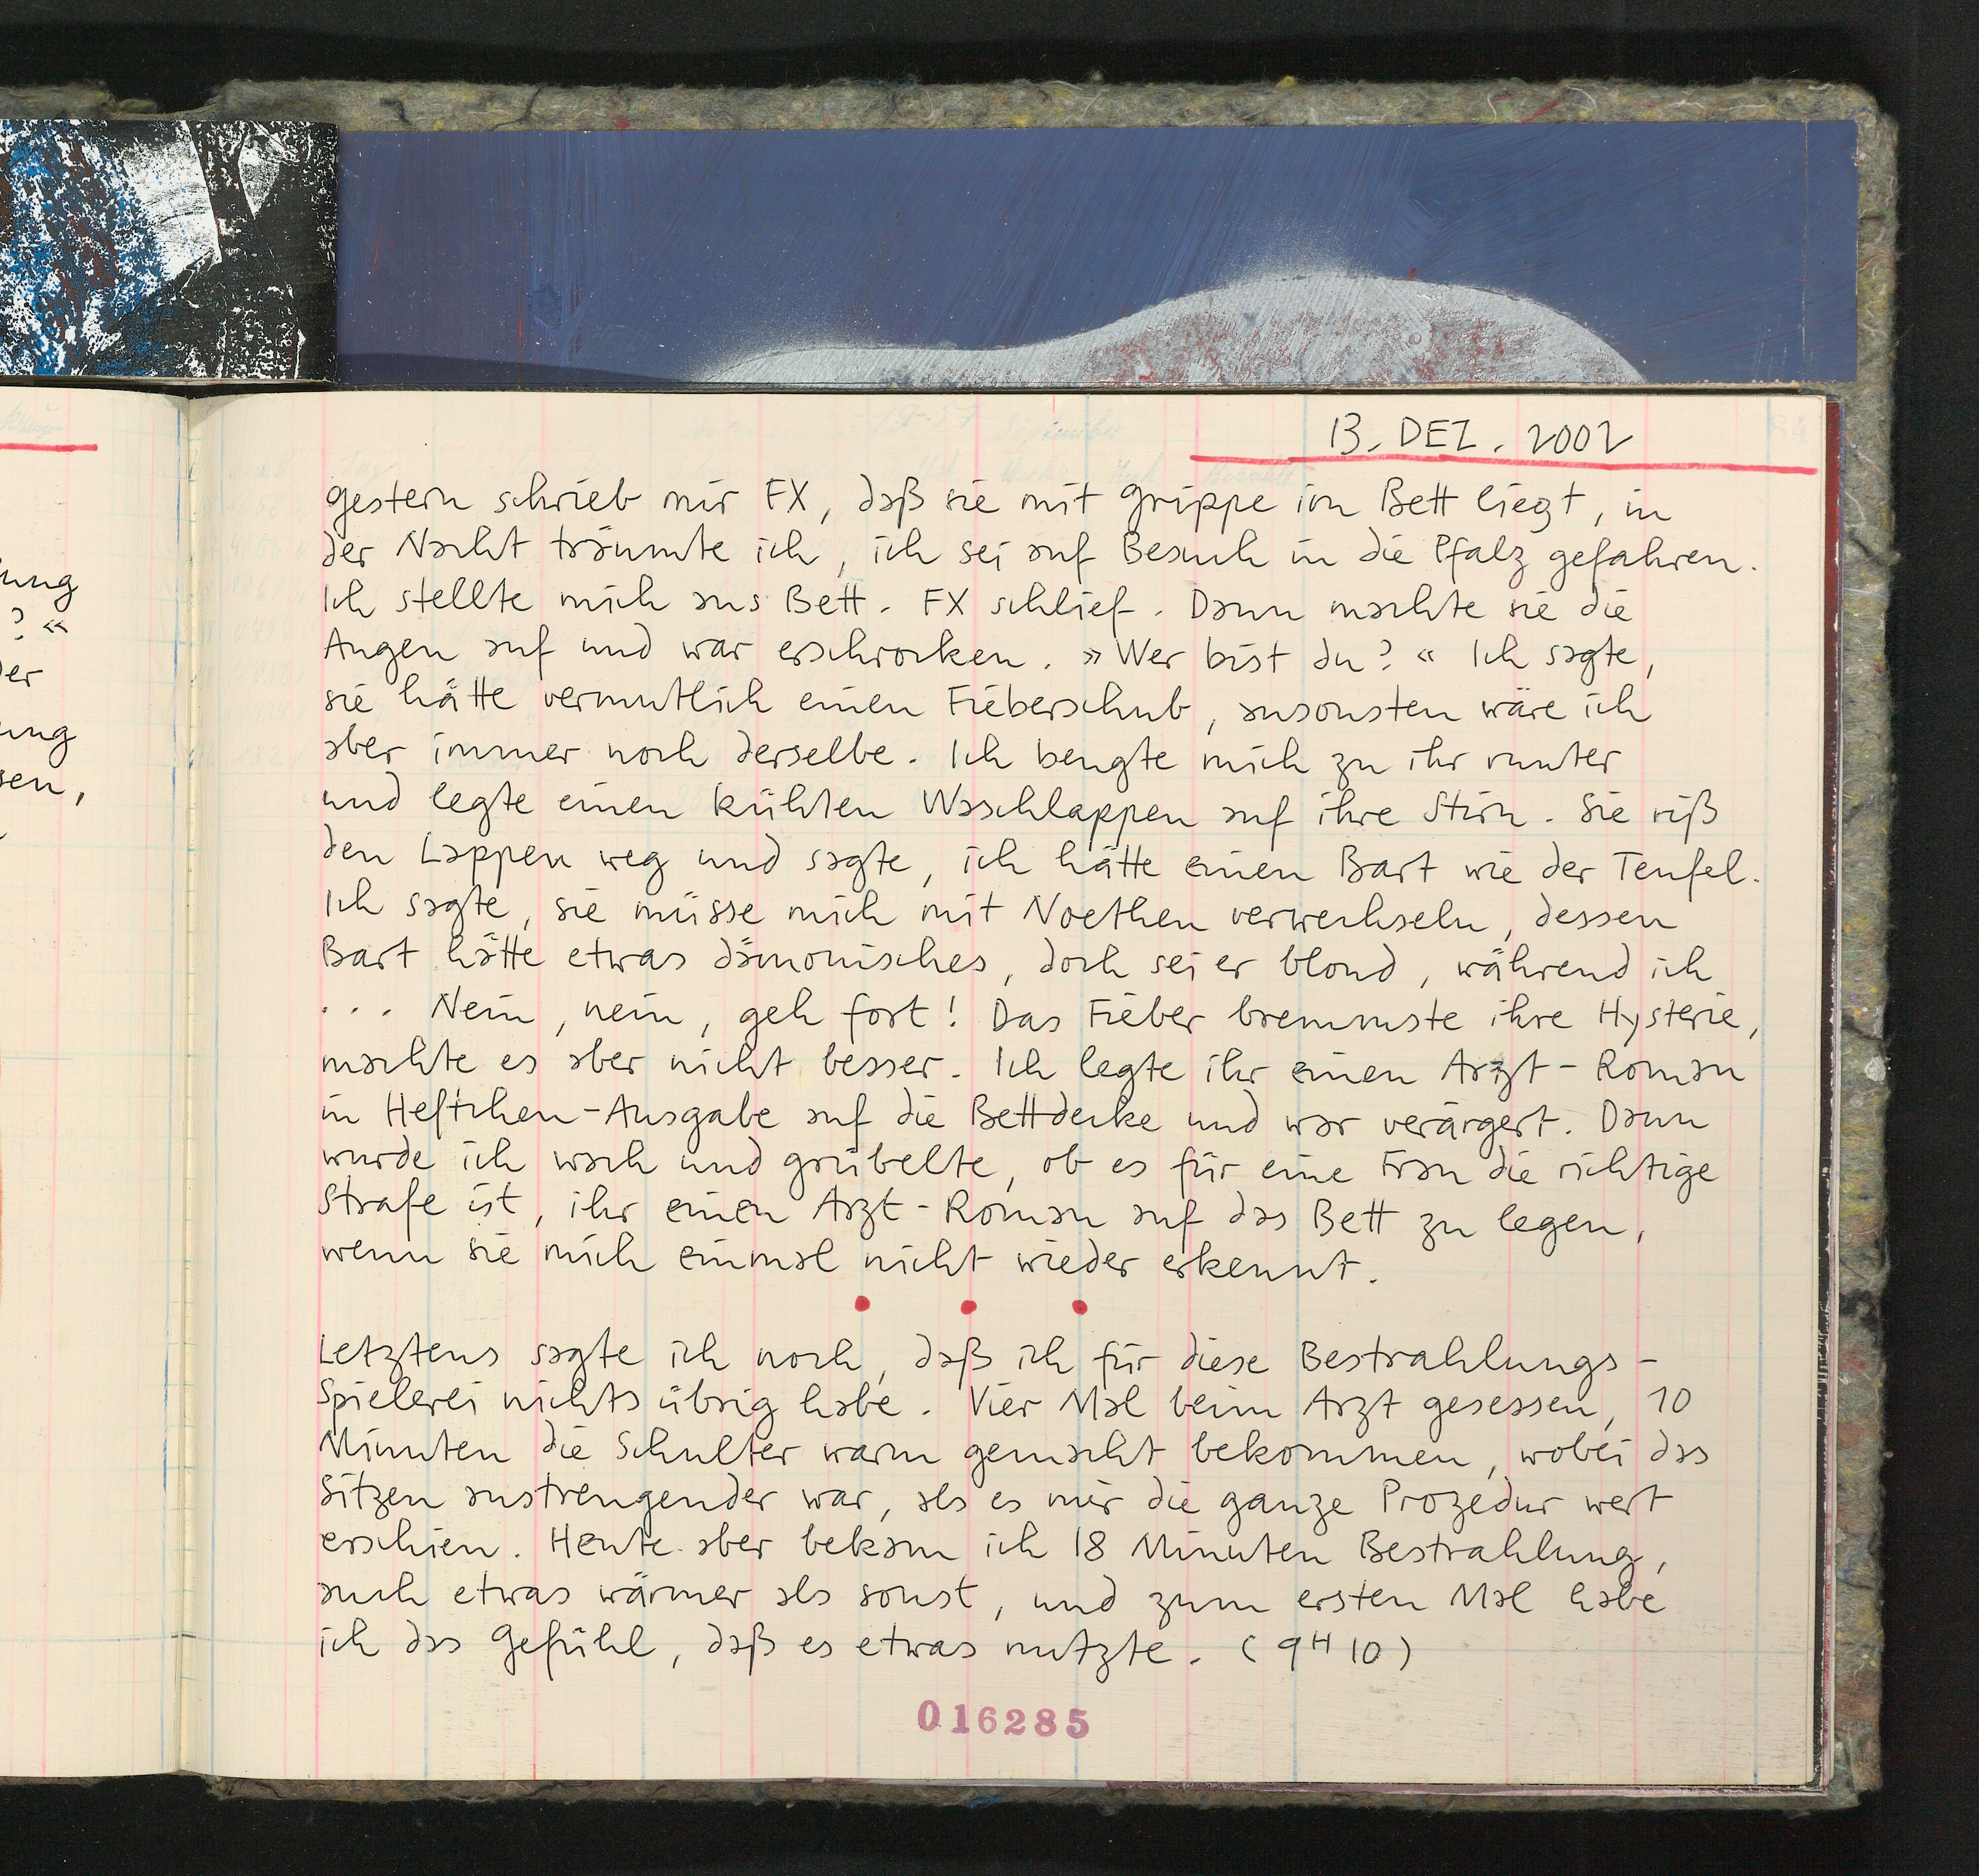 13. DEZ. 2002
gestern schrieb mir FX, daß sie mit Grippe im Bett liegt, in
der Nacht träumte ich, ich sei auf Besuch in die Pfalz gefahren.
Ich stellte mich ans Bett. FX schlief. Dann machte sie die
Augen auf und war erschrocken. »Wer bist du?« Ich sagte,
sie hätte vermutlich einen Fieberschub, ansonsten wäre ich
aber immer noch derselbe. Ich beugte mich zu ihr runter
und legte einen kühlen Waschlappen auf ihre Stirn. Sie riß
den Lappen weg und sagte, ich hätte einen Bart wie der Teufel.
Ich sagte, sie müsse mich mit Noethen verwechseln, dessen
Bart hätte etwas dämonisches, doch sei er blond, während ich
... Nein, nein, geh fort! Das Fieber bremmste ihre Hysterie,
machte es aber nicht besser. Ich legte ihr einen Arzt-Roman
in Heftchen-Ausgabe auf die Bettdecke und war verärgert. Dann
wurde ich wach und grübelte, ob es für eine Frau die richtige
Strafe ist, ihr einen Arzt-Roman auf das Bett zu legen,
wenn sie mich einmal nicht wieder erkennt.
Letztens sagte ich noch, daß ich für diese Bestrahlungs-
Spielerei nichts übrig habe. Vier Mal beim Arzt gesessen, 10
Minuten die Schulter warm gemacht bekommen, wobei das
Sitzen anstrengender war, als es mir die ganze Prozedur wert
erschien. Heute aber bekam ich 18 Minuten Bestrahlung,
auch etwas wärmer als sonst, und zum ersten Mal habe
ich das Gefühl, daß es etwas nutzte. (9H10)
016285